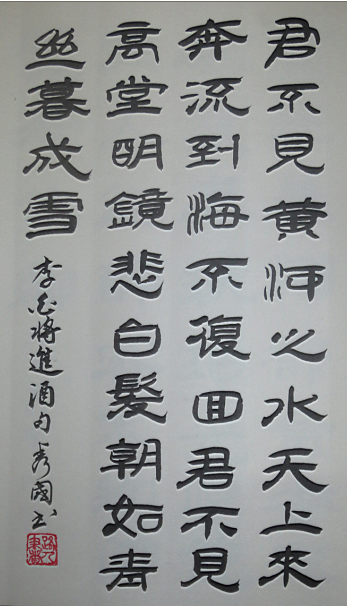 君不見黃河之水天上來
奔流到海不復回君不見
高堂明鏡悲白髮朝如青
丝暮成雪
李白将進酒句秀國书